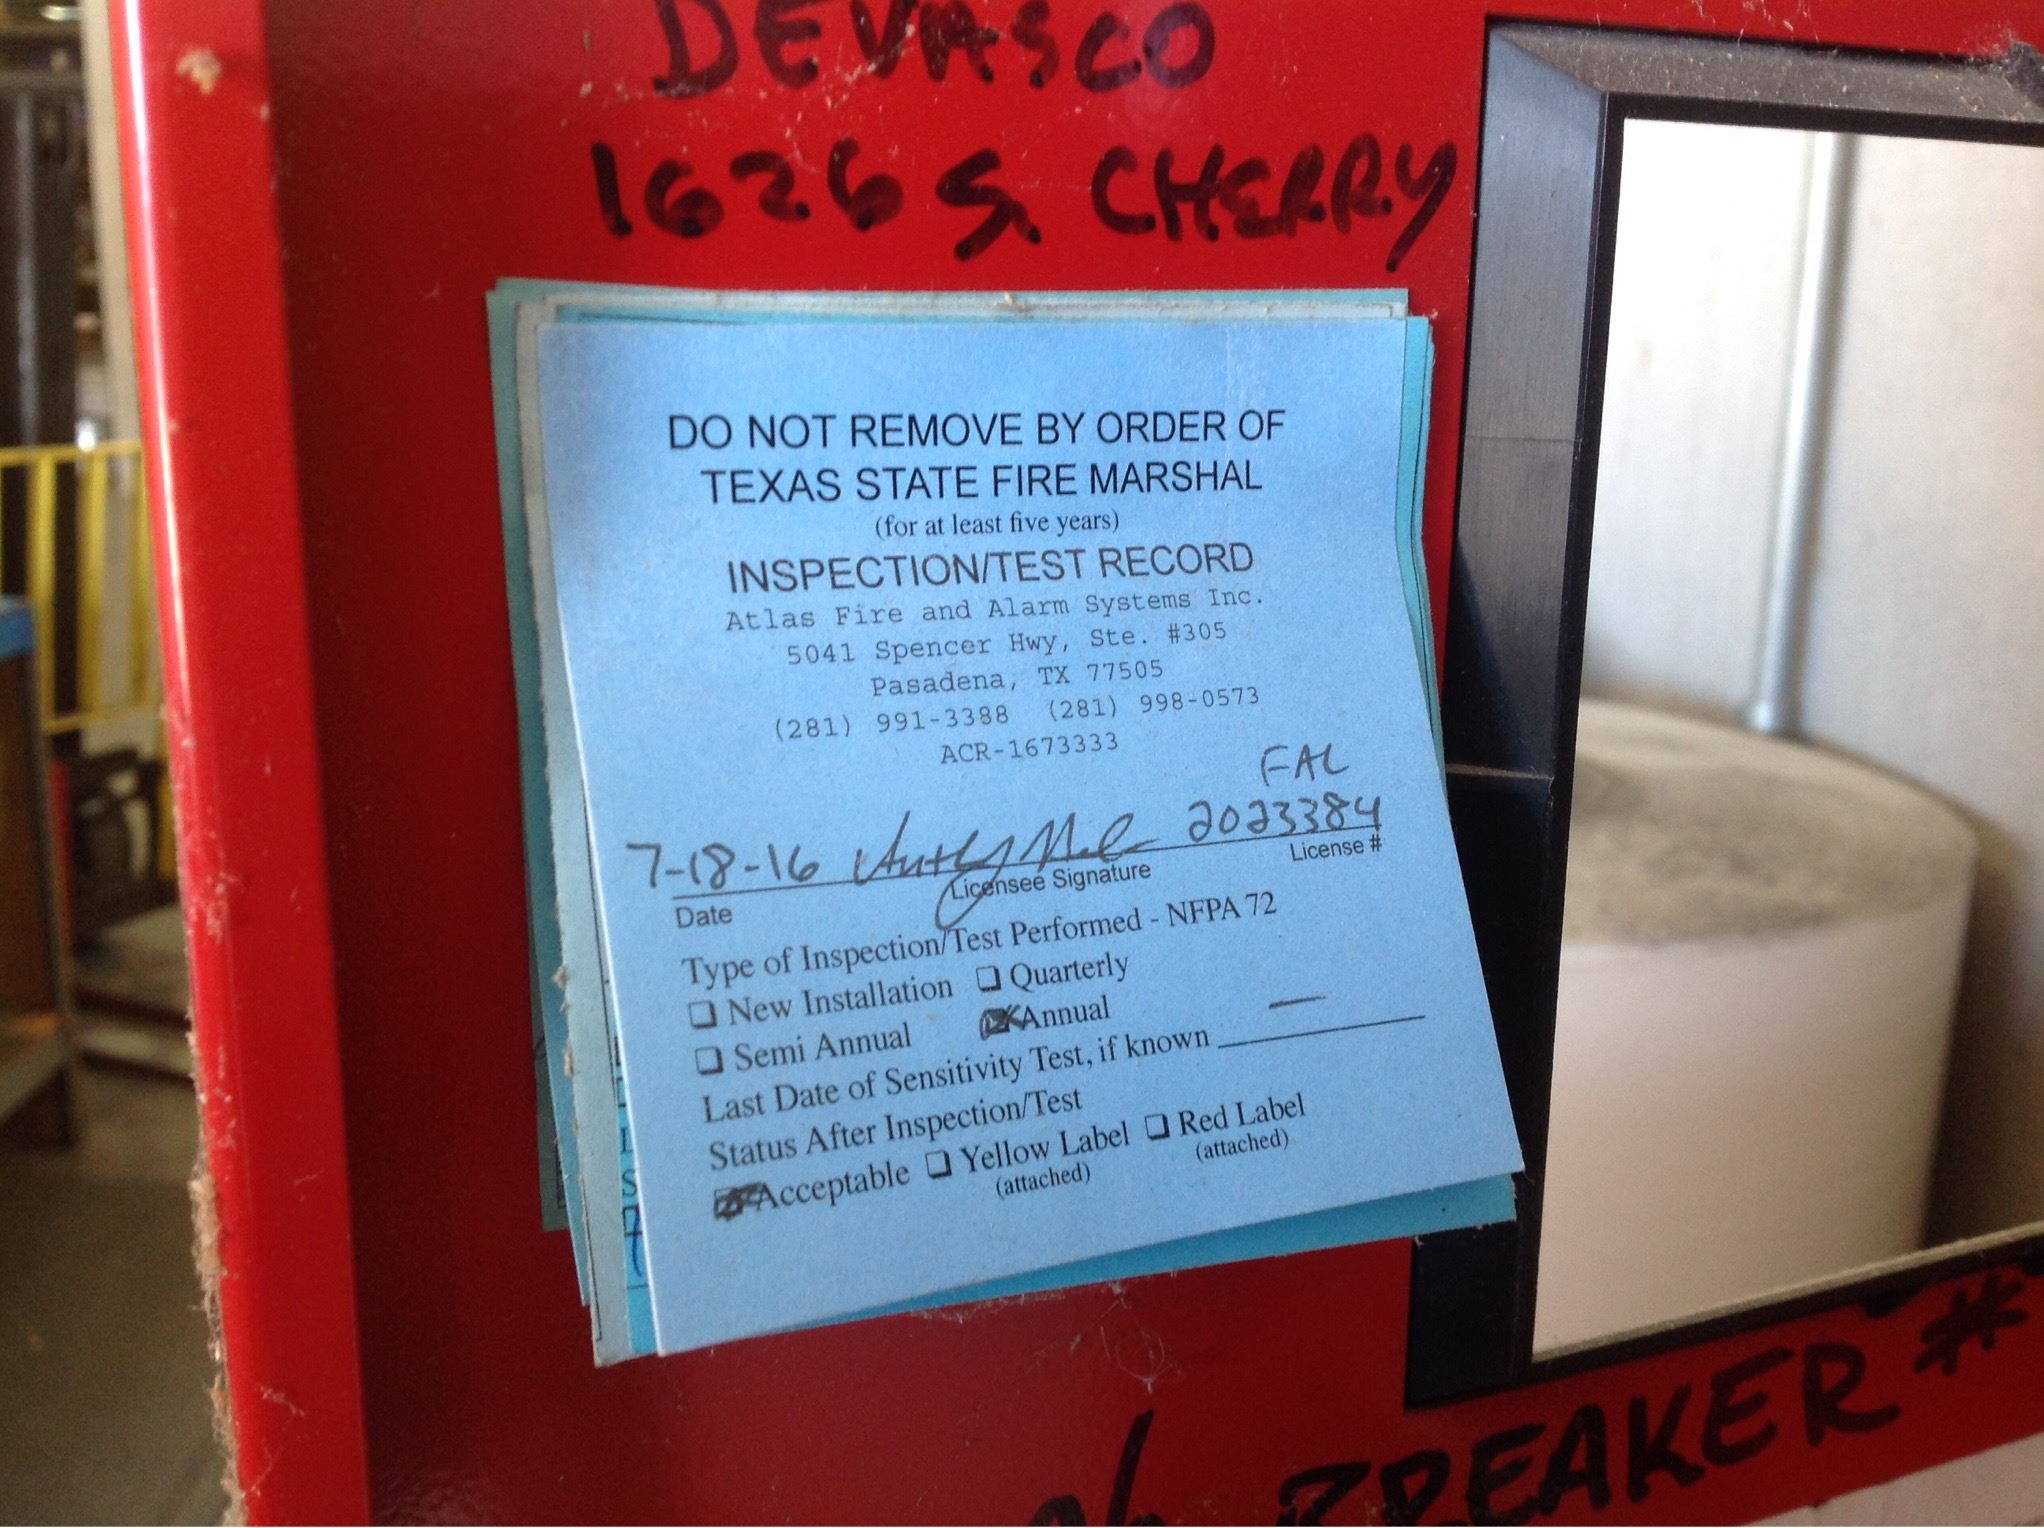 DEVASCO
1626 S. CHERRY
DO NOT REMOVE BY ORDER OF
TEXAS STATE FIRE MARSHAL
(for at least five years)
INSPECTION/TEST RECORD
Atlas Fire and Alarm Systems Inc.
5041 Spencer Hwy, Ste. #305
Pasadena, TX 77505
(281) 991-3388 (281) 998-0573
ACR-1673333
FAL
7-18-16 2023384
Date Licensee Signature License #
Type of Inspection/Test Performed - NFPA 72
❏ New Installation ❏ Quarterly
❏ Semi Annual ☒ Annual
Last Date of Sensitivity Test, if known —
Status After Inspection/Test
☒ Acceptable ❏ Yellow Label ❏ Red Label
(attached) (attached)
BREAKER #